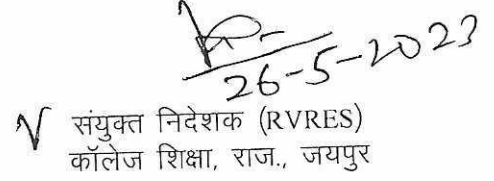 26-5-2023
संयुक्त निदेशक (RVRES)
कॉलेज शिक्षा, राज., जयपुर